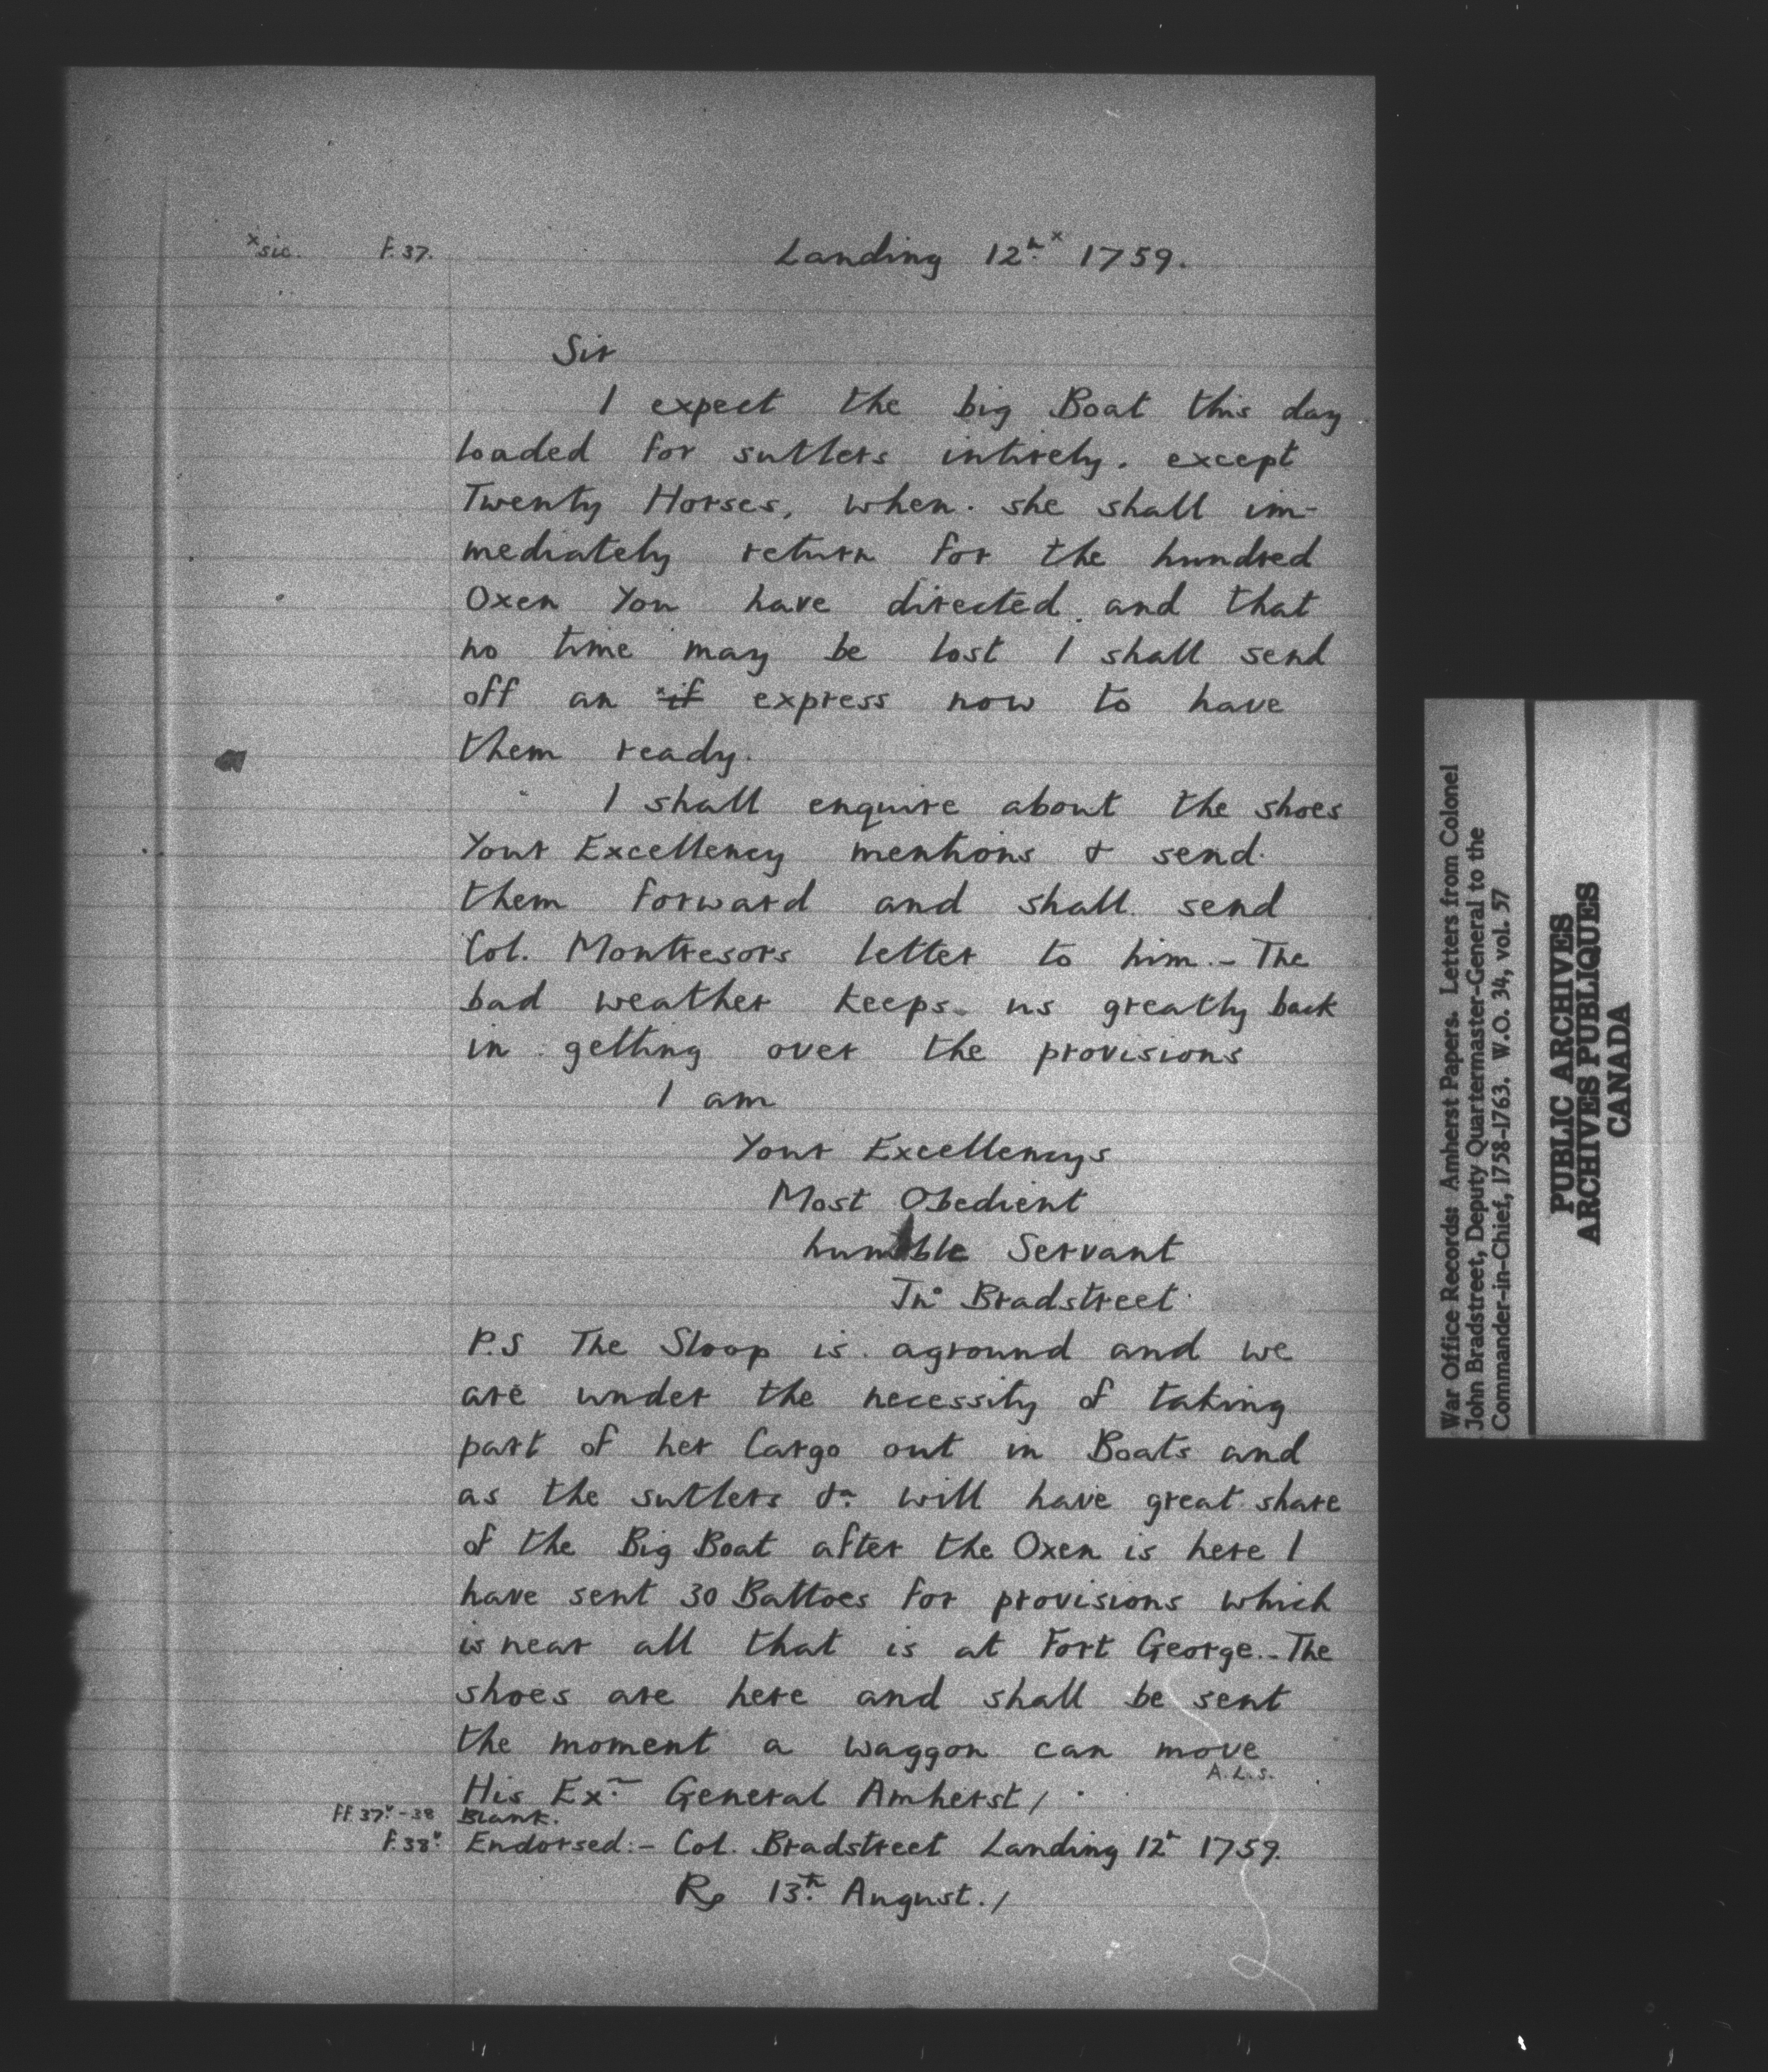 xsic. F. 37. Landing 12.h x 1759.
Sir
I expect the big Boat this day
loaded for sutlers intirely. except
Twenty Horses, when. she shall im-
mediately return for the hundred
Oxen You have directed. and that
no time may be lost I shall send
off an if express now to have
them ready.
I shall enquire about the shoes
Your Excellency mentions & send.
them forward and shall send
Col. Montresors letter to him. - The
bad weather keeps us greatly back
in getting over the provisions
I am
Your Excellencys
Most Obedient
humble Servant
Jno Bradstreet
P.S The Sloop is aground and we
are under the necessity of taking
part of her Cargo out in Boats and
as the sutlers &c will have great share
of the Big Boat after the Oxen is here I
have sent 30 Battoes for provisions which
is near all that is at Fort George. - The
shoes are here and shall be sent
the moment a waggon can move
A.L.S.
His Ex.~ General Amherst /
ff. 37.v - 38 Blank.
f. 38.v Endorsed:- Col. Bradstreet Landing 12h 1759.
R 13.th August. /
War Office Records: Amherst Papers. Letters from Colonel
John Bradstreet, Deputy Quartermaster-General to the
Commander-in-Chief, 1758-1763. W.O. 34, vol. 57
PUBLIC ARCHIVES
ARCHIVES PUBLIQUES
CANADA